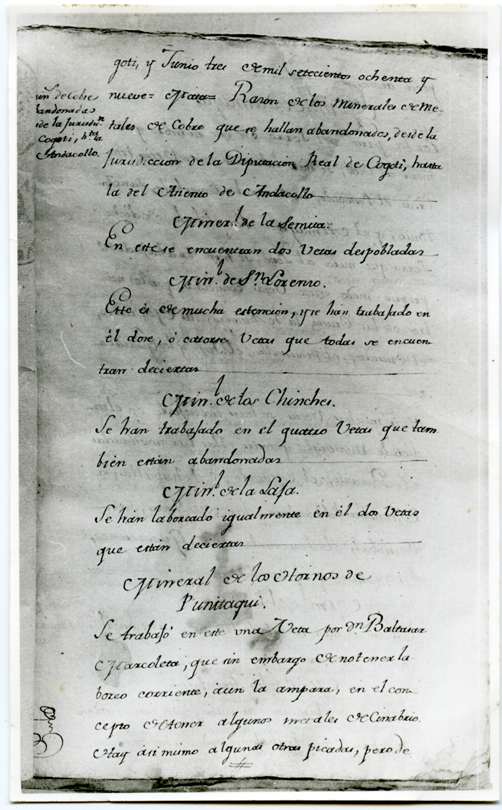 goti, y Junio tres de mil setecientos ochenta y
nueve = Mata = Razon de los Minerales de Me-
tales de Cobre que se hallan abandonados, desde la
Jurisdiccion de la Diputacion Real de Cogotí, hasta
la del Asiento de Andacollo
de Cobre
abandonadas
de la Jurisdi.n
Cogoti, h.ta
Andacollo.
Miner.l de la Semita.
En este se encuentran dos Vetas despobladas
Min.l de S.n Lorenzo.
Este es de mucha estencion, y se han trabajado en
él dose, ó catorse Vetas que todas se encuen
tran deciertas
Min.l de los Chinches.
Se han trabajado en el quatro Vetas que tam
bien están abandonadas
Min.l de la Laja.
Se hán laboreado igualmente en él dos Vetas
que están deciertas
Mineral de los Hornos de
Punitaqui.
Se trabajó en este una Veta por D.n Baltasar
Marcoleta, que sin embargo de no tener la
boreo corriente, aun la ampara, en el con-
cepto de tener algunos metales de Cinabrio.
Hay ási mimo algunas otras picadas, pero de